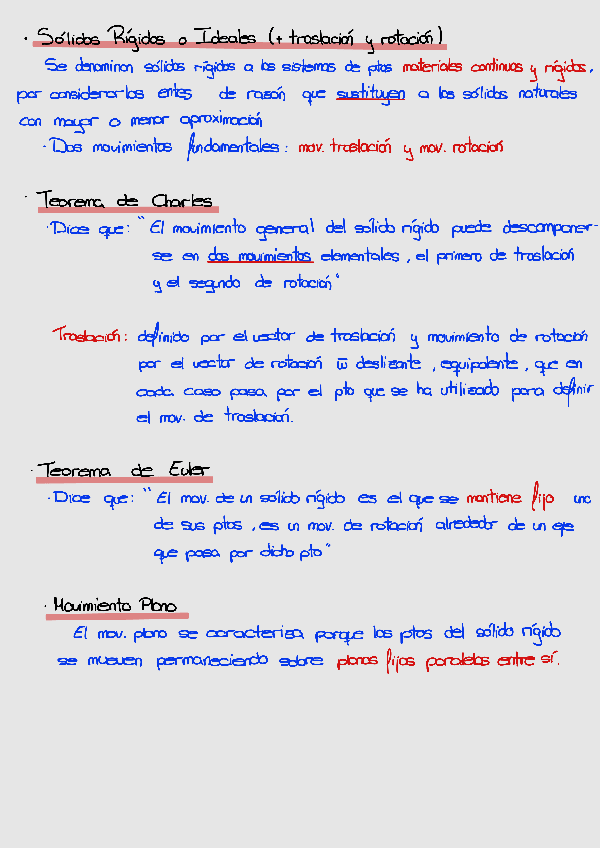 · Sólidos Rígidos o Ideales (+ traslación y rotación)
Se denominan sólidos rígidos a los sistemas de ptos materiales continuos y rígidos,
por considerarlos entes de razón que sustituyen a los sólidos naturales
con mayor o menor aproximación
· Dos movimientos fundamentales: mov. traslación y mov. rotación
· Teorema de Charles
· Dice que: "El movimiento general del sólido rígido puede descomponer-
se en dos movimientos elementales, el primero de traslación
y el segundo de rotación"
Traslación: definido por el vector de traslación y movimiento de rotación
por el vector de rotación ω̄ deslizante, equipolente, que en
cada caso pasa por el pto que se ha utilizado para definir
el mov. de traslación.
· Teorema de Euler
· Dice que: "El mov. de un sólido rígido es el que se mantiene fijo uno
de sus ptos, es un mov. de rotación alrededor de un eje
que pasa por dicho pto"
· Movimiento Plano
El mov. plano se caracteriza porque los ptos del sólido rígido
se mueven permaneciendo sobre planos fijos paralelos entre sí.